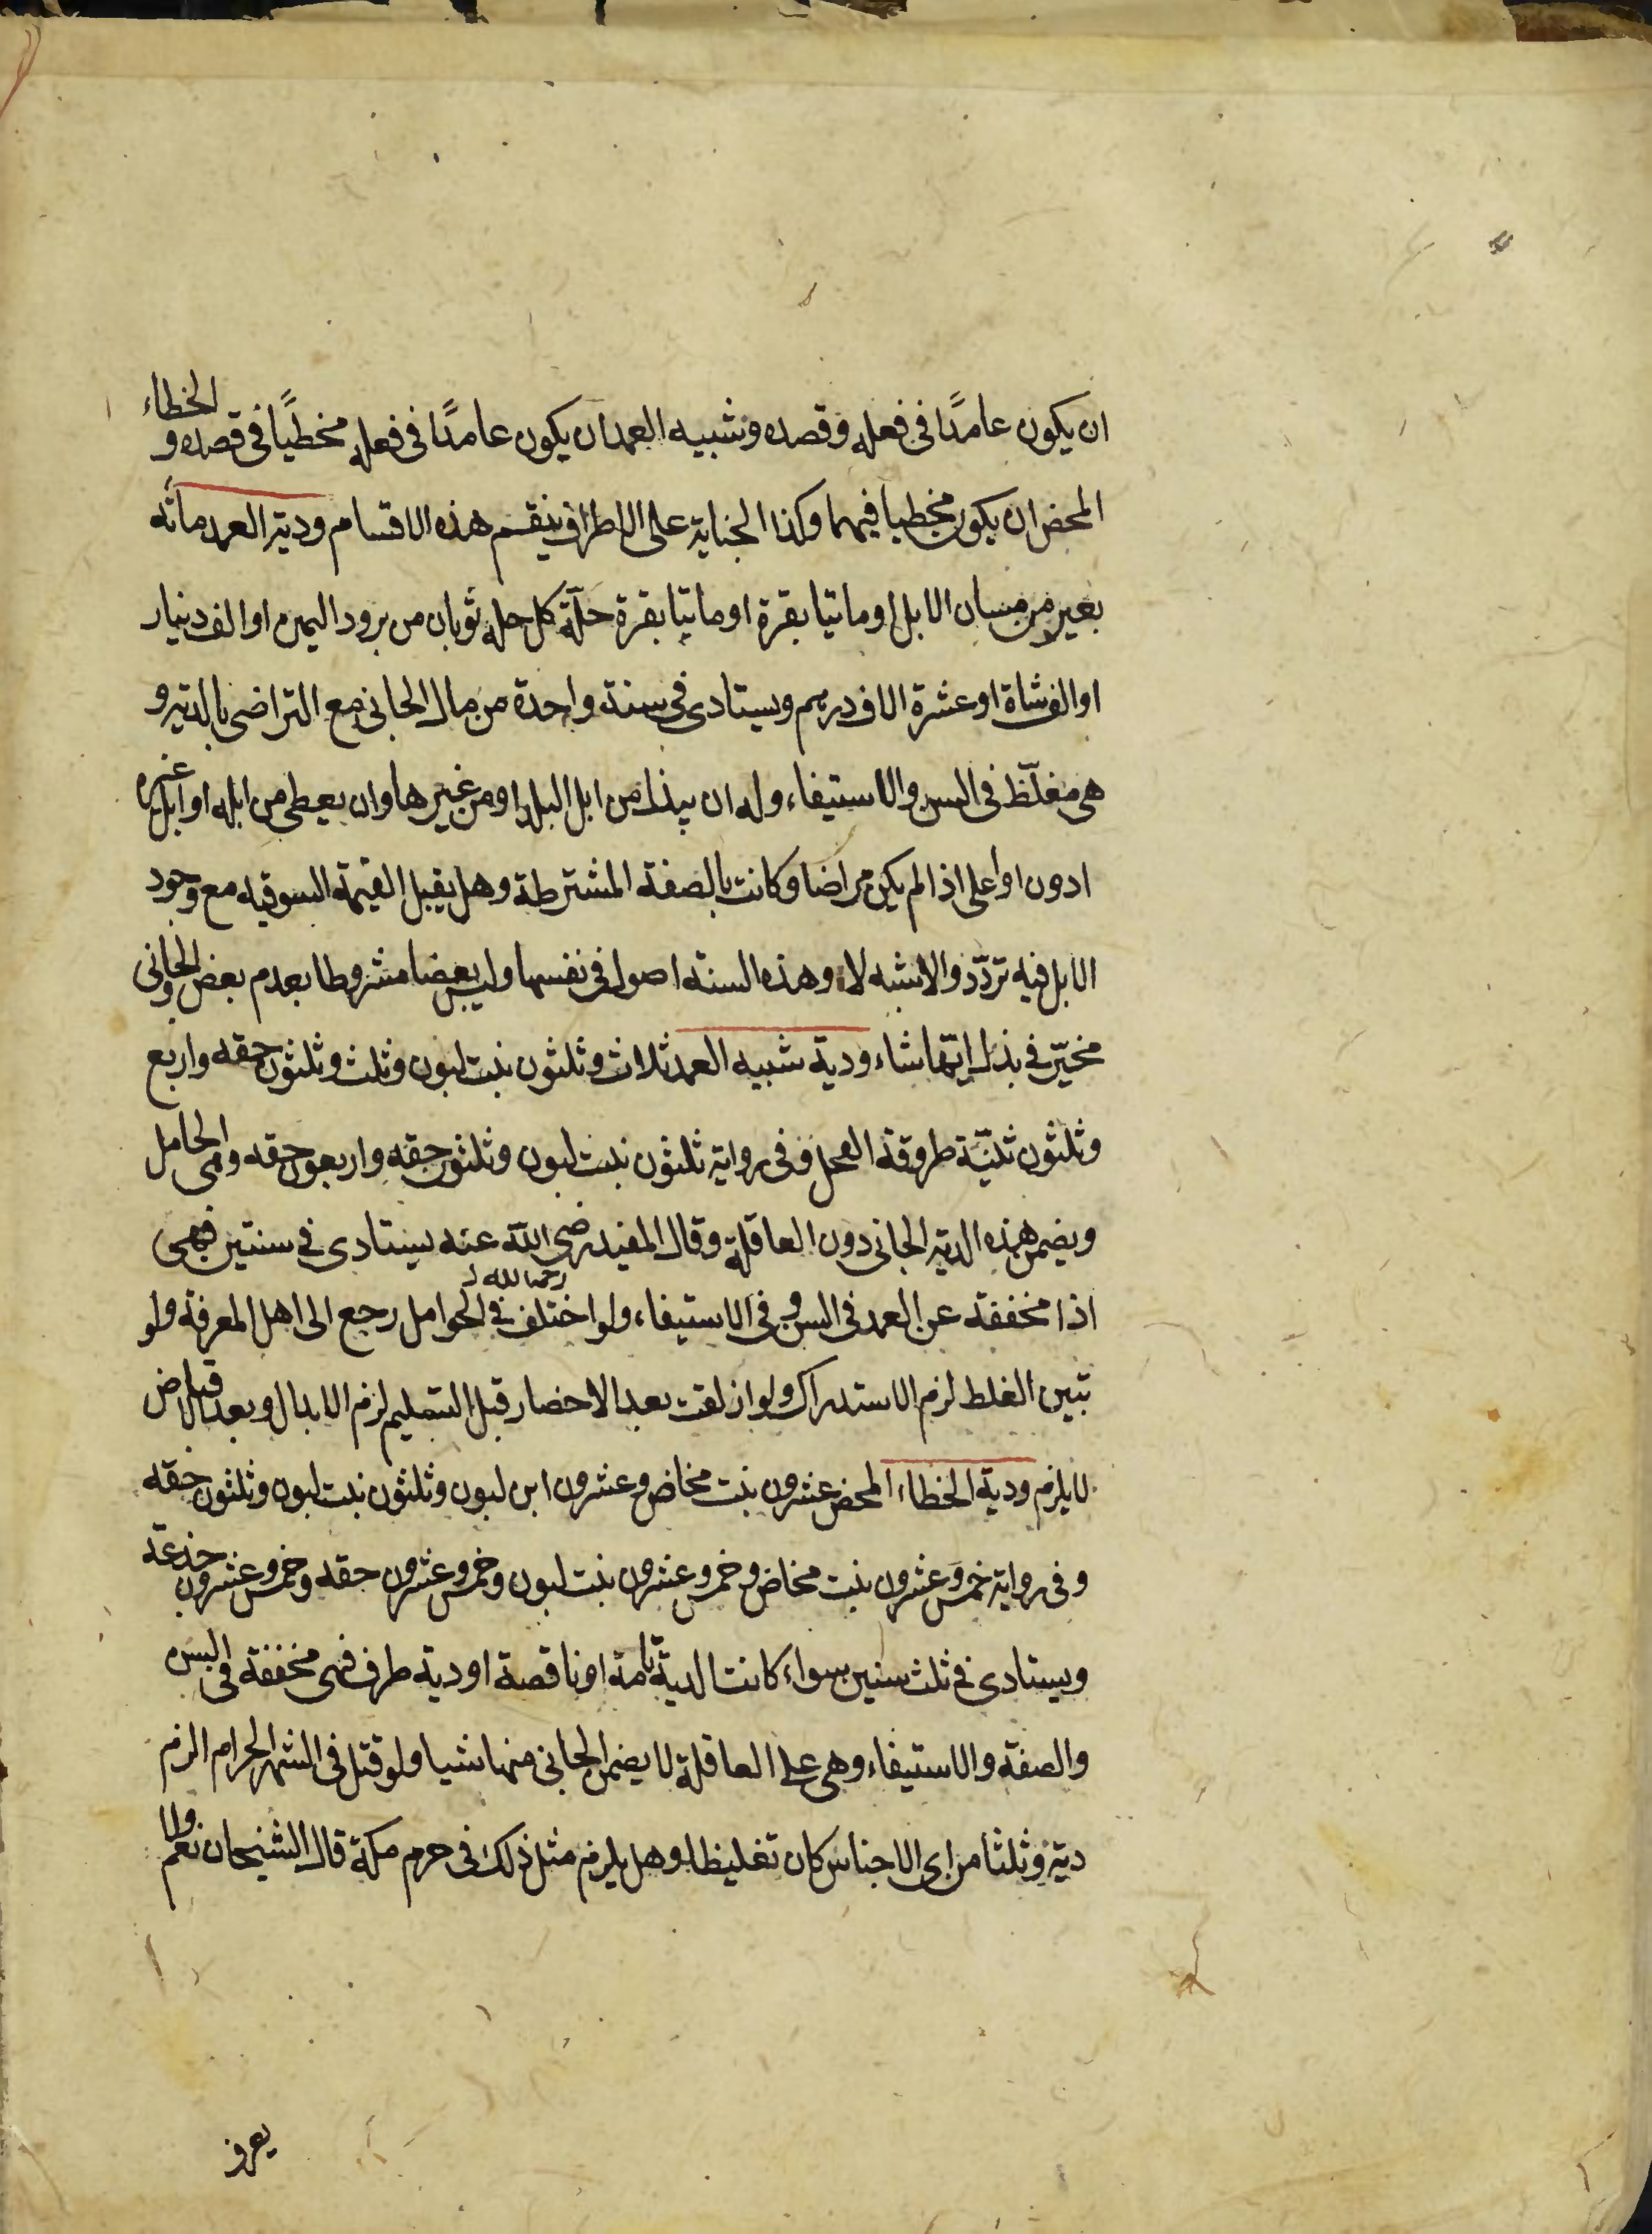 ان يكون عامدًا فى فعله وقصده وشبيه العمد ان يكون عامدًا فى فعله مخطيًا فى قصده و الخطاء
المحض ان يكون مخطيا فيهما وكذا الجناية على الاطراف ينقسم هذه الاقسام ودية العمد مائه
بعير من مسان الابل او ماتيا بقرة او ماتيا بقرة حلّة كل حله ثوبان من برود اليمن او الف دينار
او الف شاة او عشرة الاف درهم ويستادى فى سنة واحدة من مال الجانى مع التراضى بالدية و
هى مغلّظ فى السن والاستيفاء وله ان يبذل من ابل البلد او من غيرها وان يعطى من ابله او ابل غيره
ادون او اعلى اذا لم يكن مراضا وكانت بالصفة المشترطة وهل يقبل القيمة السوقيه مع وجود
الابل فيه تردّد والاشبه لا وهذه الستة اصول فى نفسها وليس بعضا مشروطا بعدم بعض والجانى
مخيّر فى بذل ايّها شاء ودية شبيه العمد ثلاث وثلثون بنت لبون وثلث وثلثون حقه واربع
وثلثون ثنيّة طروقة الفحل وفى رواية ثلثون بنت لبون وثلثون حقه واربعون حقه وهى الحامل
ويضمن هذه الدية الجانى دون العاقلة وقال المفيد رضى الله عنه يستادى فى سنتين فهى
رحمه الله
اذا مخففة عن العمد فى السن وفى الاستيفاء ولو اختلف فى الحوامل رجع الى اهل المعرفة ولو
تبين الغلط لزم الاستدراك ولو ازلقت بعد الاحضار قبل التسليم لزم الابدال وبعد
لا يلزم ودية الخطاء المحض عشرون بنت مخاض وعشرون ابن لبون وثلثون بنت لبون وثلثون حقه
وفى رواية خمس وعشرون بنت مخاض وخمس وعشرون بنت لبون وخمس وعشرون حقه وخمس وعشرون جذعة
ويستادى فى ثلث سنين سواء كانت الدية تامة او ناقصة او دية طرف فهى مخففة فى السن
والصفة والاستيفاء وهى على العاقلة لا يضمن الجانى منها شيا ولو قتل فى الشهر الحرام الزم
دية وثلثا من اى الاجناس كان تغليظا وهل يلزم مثل ذلك فى حرم مكة قال الشيخان نعم ولا
يعرف